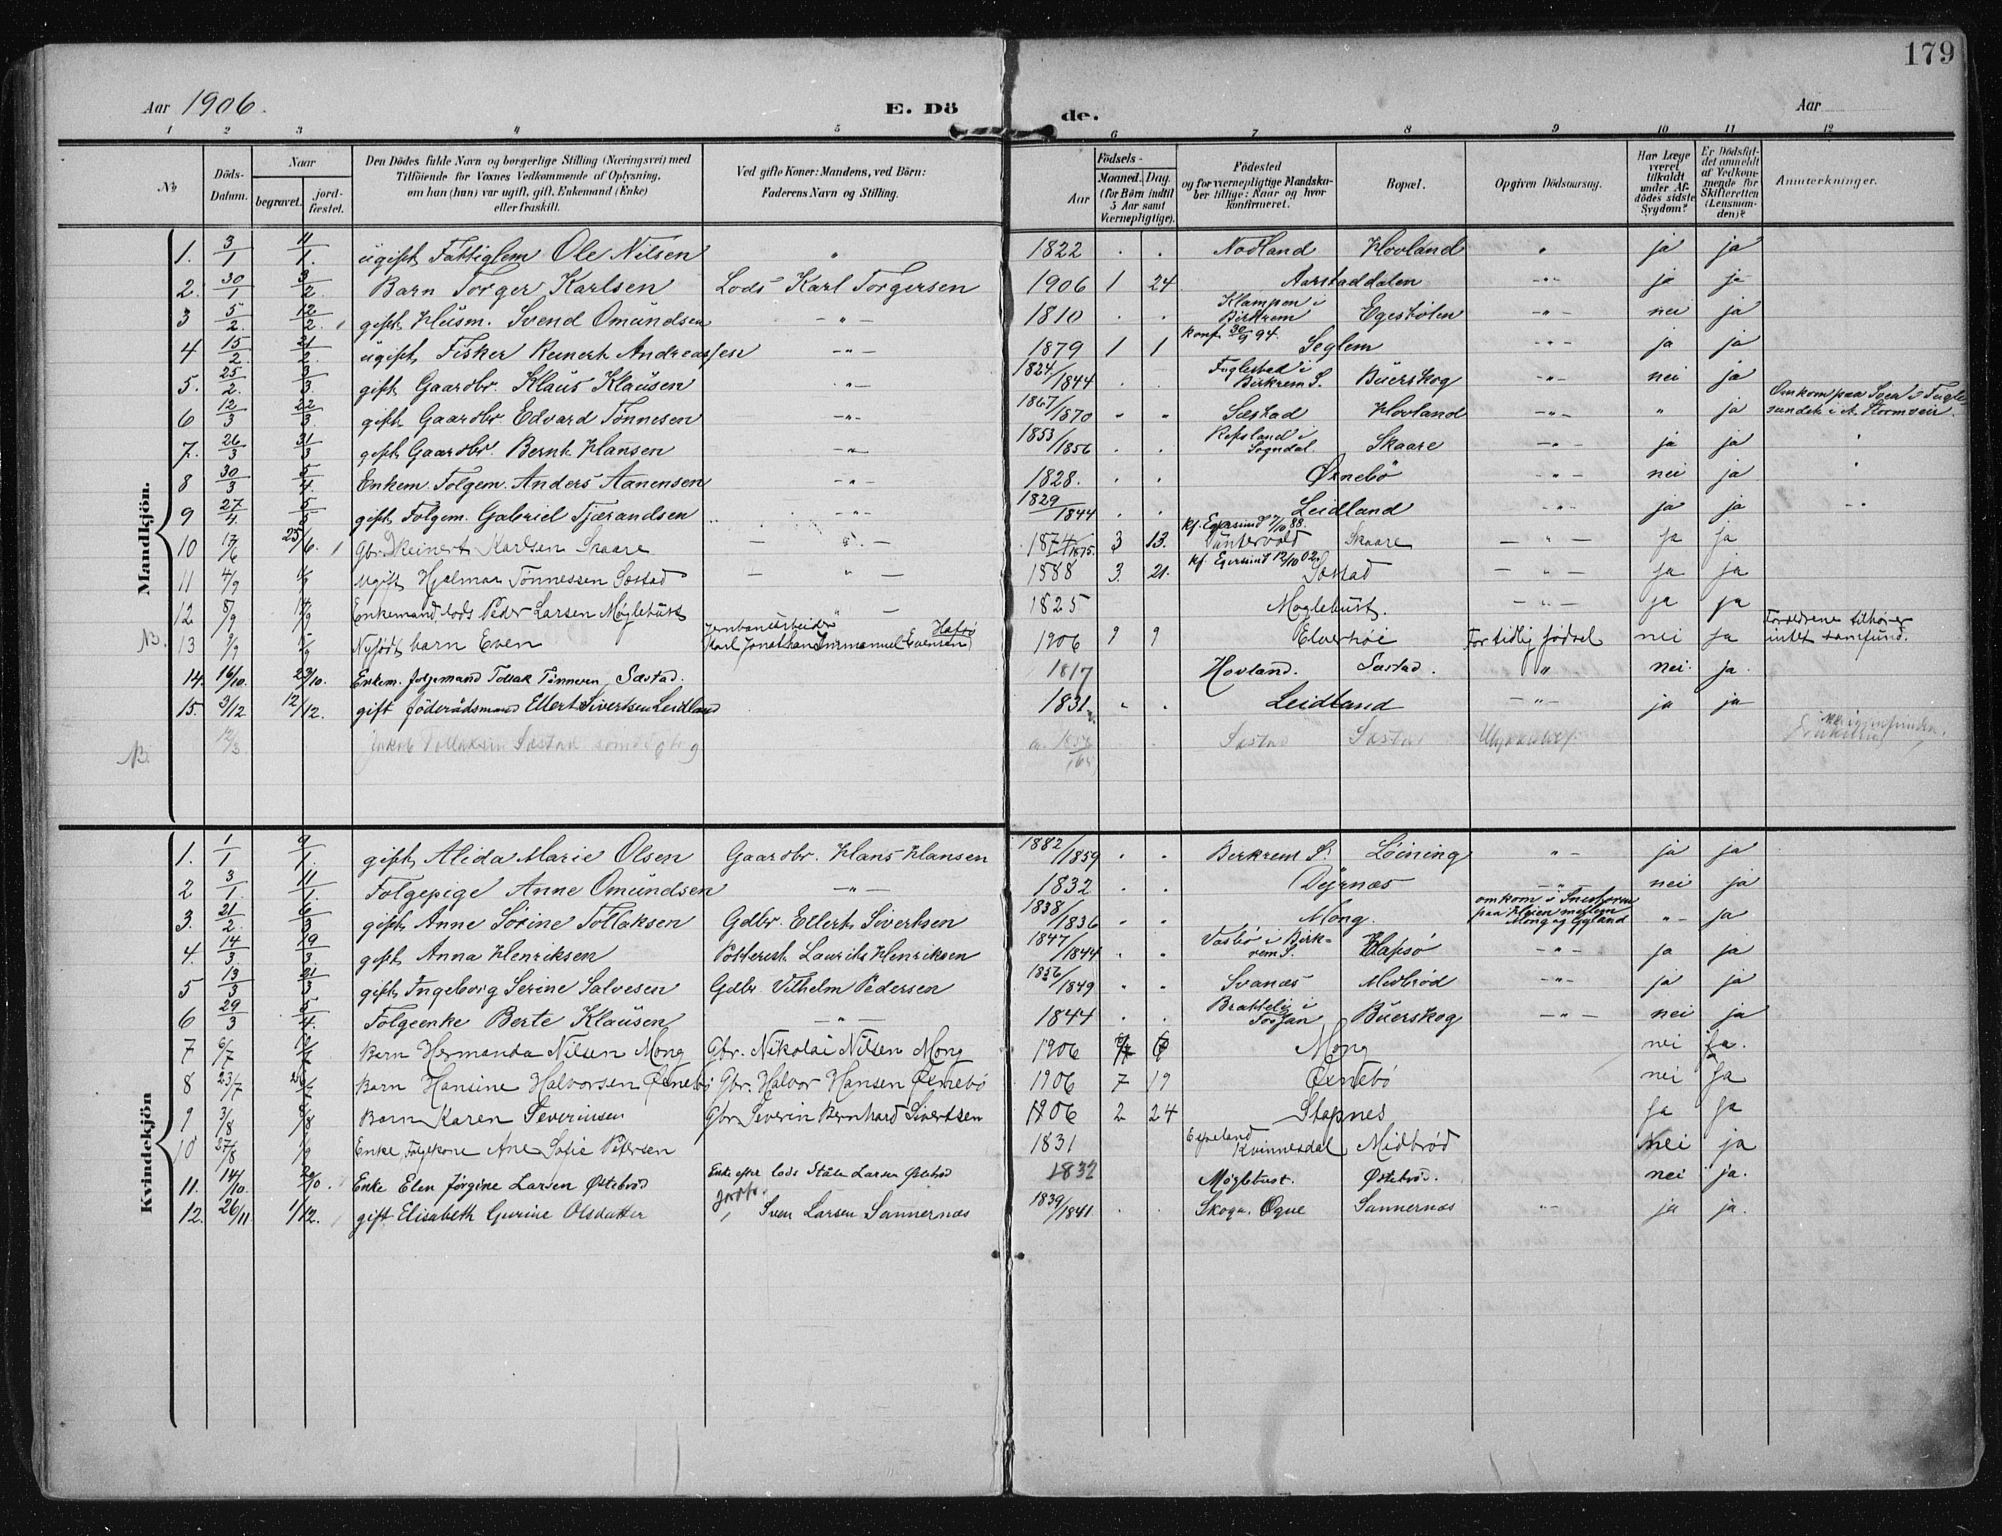 179
Aar 1906.
E. Dö
de.
Aar
1 2 3 4 5 6 7 8 9 10 11 12
No
Döds-Datum.
Naar
begravet.
jord-fæstet.
Den Dödes fulde Navn og borgerlige Stilling (Næringsvei) med
Tilföiende for Voxnes Vedkommende af Oplysning,
om han (hun) var ugift, gift, Enkemand (Enke)
eller fraskilt.
Ved gifte Koner: Mandens, ved Börn:
Faderens Navn og Stilling.
Födsels-
Aar
Maaned. Dag.
(for Börn indtil
5 Aar samt
Værnepligtige).
Födested
og for værnepligtige Mandska-
ber tillige: Naar og hvor
konfirmeret.
Bopæl.
Opgiven Dödsaarsag.
Har Læge
været
tilkaldt
under Af-
dödes sidste
Sygdom?
Er Dödsfal-
det anmeldt
af Vedkom-
mende for
Skifteretten
(Lensman-
den)?
Anmærkninger.
Mandkjön.
1. 3/1 11/1. ugift Fattiglem Ole Nilsen " 1822 . . Nodland Hovland " ja ja
2. 30/1 3/2. Barn Torger Karlsen Lods Karl Torgersen 1906 1 24 Aarstaddalen -"- ja ja
3 5/2. 12/2. gift Husm. Svend Omundsen -"- 1810 . . Klampen i Birkrem Egestølen -"- nei ja
4 15/2. 21/2. ugift Fisker Reinert Andreassen -"- 1879 1 1 Konf. 30/9 94. Seglem -"- ja ja
5. 25/2. 3/3. gift Gaardbr. Klaus Klausen -"- 1824/1844 . . Fuglestad i Birkrem S. Buerskog -"- nei ja
6 12/3 22/3. gift Gaardbr Edvard Tønnesen -"- 1867/1870 " " Sæstad Hovland -"- " ja Omkom paa Søen i Fugle-
sundet i et Stormveir.
7. 26/3 31/3 gift Gaardbr. Bernt Hansen -"- 1853/1856 . . Refsland i Sogndal Skaare -"- ja ja
8 30/3 5/4. Enkem. Folgem. Anders Aanensen -"- 1828. . . Øxnebø -"- nei ja
9 27/4. 5/5 gift Folgem. Gabriel Tjærandsen -"- 1829/1844 . . Leidland -"- ja ja -"-
10 17/6 25/6. Gbr. Reinert Karlsen Skaare - " - 1874/1875. 3 13. kf. Egersund 7/10 88. Skaare - " - ja ja
11 4/9 ugift Hjalmar Tønnessen Sæstad - " - 1888 3. 21. kf. Egersund 12/10 02. Sæstad - " - ja ja
12 8/9 14/9 Enkemand lods Peder Larsen Møglebust " - 1825 Møglebust. - " - ja ja
NB. 13 9/9 Nyfødt barn Even Jernbanearbeider
Karl Jonathan Immanuel Evensen Hafsø 1906 9 9 Elverhøi For tidlig fødsel nei ja Forældrene tilhører
intet samfund.
14. 16/10. 23/10. Enkem. folgemand Tollak Tønnesen Sæstad. 1817 Hovland. Sæstad. " nei ja.
15. 3/12 12/12. gift føderådsmand Ellert Sivertsen Leidland 1831. " . Leidland -"- ja ja
NB. 12/3 Jakob Tollaksen Sæstad Sæstad Sæstad
Kvindekjön
1. 1/1 9/1. gift Alida Marie Olsen Gaardbr. Hans Hansen 1882/1859 . . Birkrem S. Leining "- ja ja
2 3/1. 11/1. Folgepige Anne Omundsen -"- 1832 . . Dyrnæs -"- nei ja
3. 21/2. 6/3 gift Anne Sørine Tollaksen Gdbr. Ellert Sivertsen 1838/1836 . . Mong. omkom i Snestorm
paa Heien mellem
Mong og Eyeland "- ja
4. 14/3. 19/3. gift Anna Henriksen Potterist Laurits Henriksen 1847/1844 " . Vasbø i Birk-
rem S. Hafsø -"- ja ja
5 13/3 21/3 gift Ingeborg Serine Salvesen Gdbr Vilhelm Pedersen 1856/1849 " . Svanæs Midbrød -"- ja ja
6 29/3 5/4. Folgeenke Berte Klausen -"- 1844 . . Brattelig i Buerskog -"- nei ja
7 6/7 Barn Hermanda Nilsen Mong Gbr. Nikolai Nilsen Mong 1906 Mong nei ja.
8 23/7 Barn Hansine Halvorsen Øxnebø Gbr. Halvor Hansen Øxnebø 1906 7 19 Øxnebø nei ja
9 3/8 Barn Karen Severinsen Gbr Severin Bernhard Sivertsen 1906 2 24 Stapnes ja ja
10 27/8 1/9 Enke, Folgekone Ane Sofie Petersen 1831 Kvinnesdal Midbrød nei ja
11. 14/10. 20/10. Enke Elen Jørgine Larsen Østebrød Enke efter lods Ståle Larsen Østebrød 1832 Møglebust. Østebrød. nei ja.
12. 26/11. 1/12. gift Elisabeth Gurine Olsdatter Jordbr. Sven Larsen Sannernæs 1839/1841. . . Skoga. Ogne Sannernæs "- ja ja.